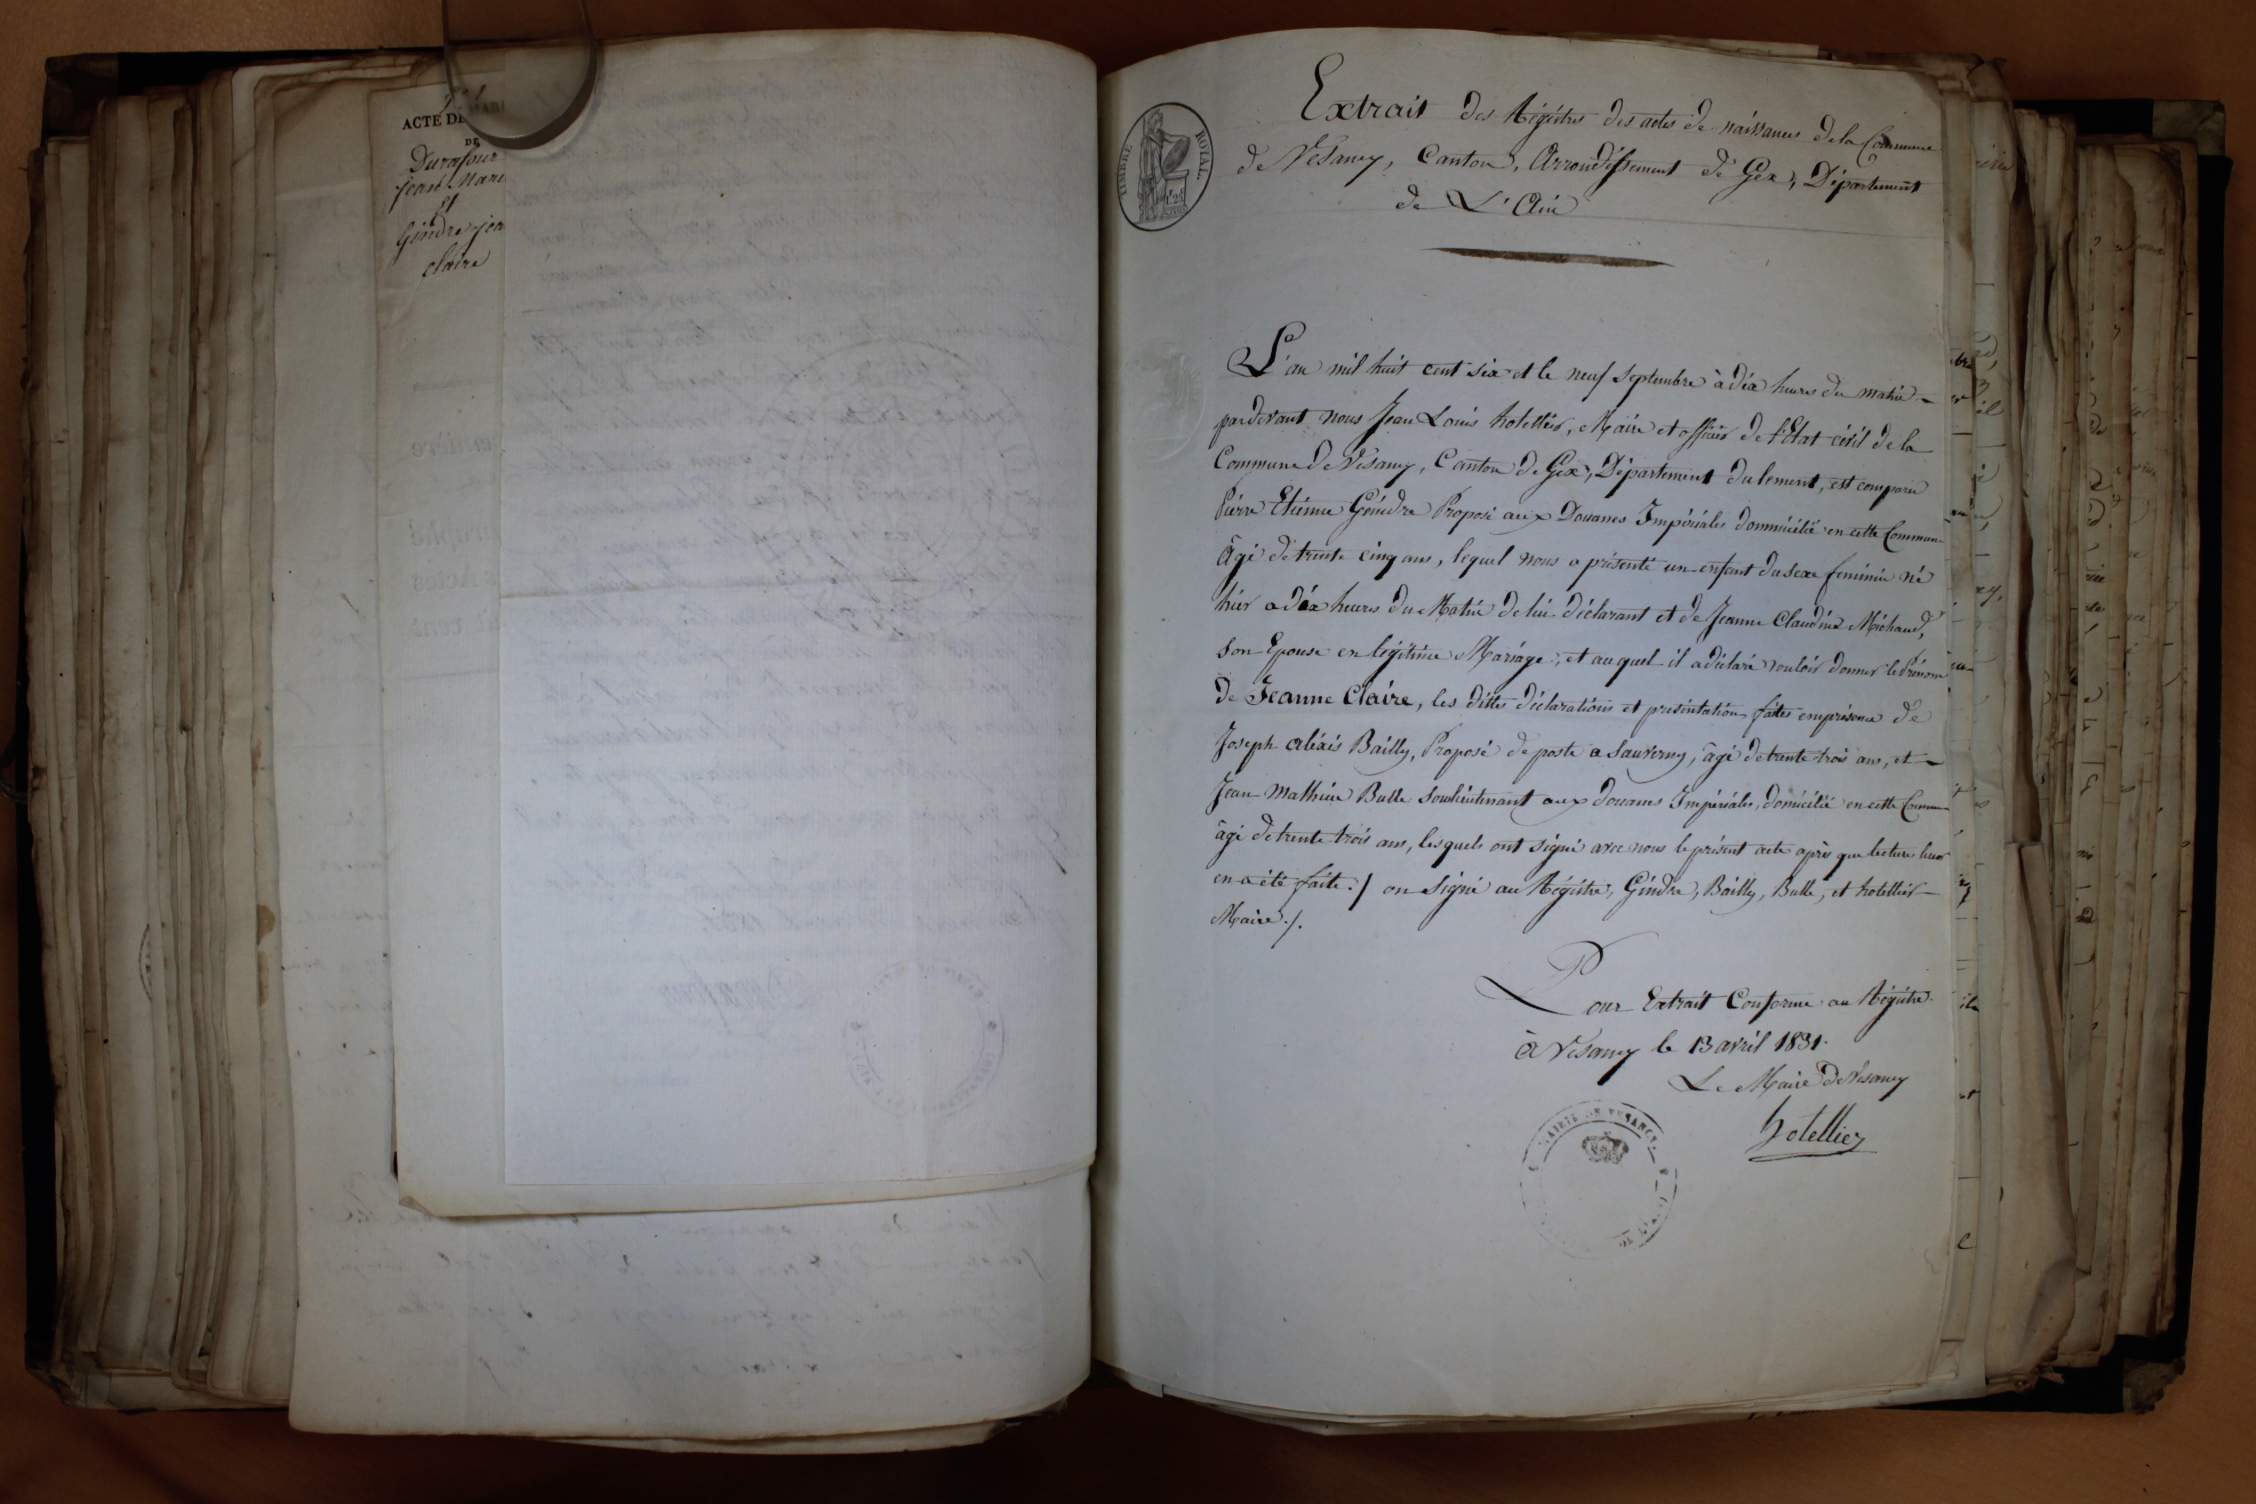 ACTE DE
DE
Durafour
jean Mari
et
Gindre jea
claire
TIMBRE ROYAL
Extrait des Régistres des actes de naissances de la Commune
de Vésancy, Canton, Arrondissement de Gex, Département
de L'Ain
L'an mil huit cent six et le neuf septembre à dix heures du matin
pardevant nous Jean Louis hotellier, Maire et officier de l'Etat civil de la
Commune de Vésancy, Canton de Gex, Département du lement, est comparu
Pierre Etienne Géindre Préposé aux Douanes Impériales dommicilié en cette Commune
âgé de trente cinq ans, lequel nous a présenté un enfant du sexe feminin né
hier a dix heures du Matin de lui déclarant et de Jeanne Claudine Michaud,
son Epouse en légitime Mariage, et auquel il a déclaré vouloir donner le Prénom
de Jeanne Claire, les dittes déclarations et présentation faites en présence de
Joseph Aléxis Bailly, Préposé de poste a Sauverny, âgé de trente trois ans, et
Jean Mathieu Bulle Souslieutenant aux douanes Impériales, domicilié en cette Commune
âgé de trente trois ans, lesquels ont signé avec nous le présent acte après que lecture leur
en a été faite ./ on Signé au Régistre, Gindre, Bailly, Bulle, et hotellier
Maire ./.
Pour Extrait Conforme au Régistre
à Vésancy le 13 avril 1831.
Le Maire de Vésancy
hotellier
MAIRIE DE VESANCY